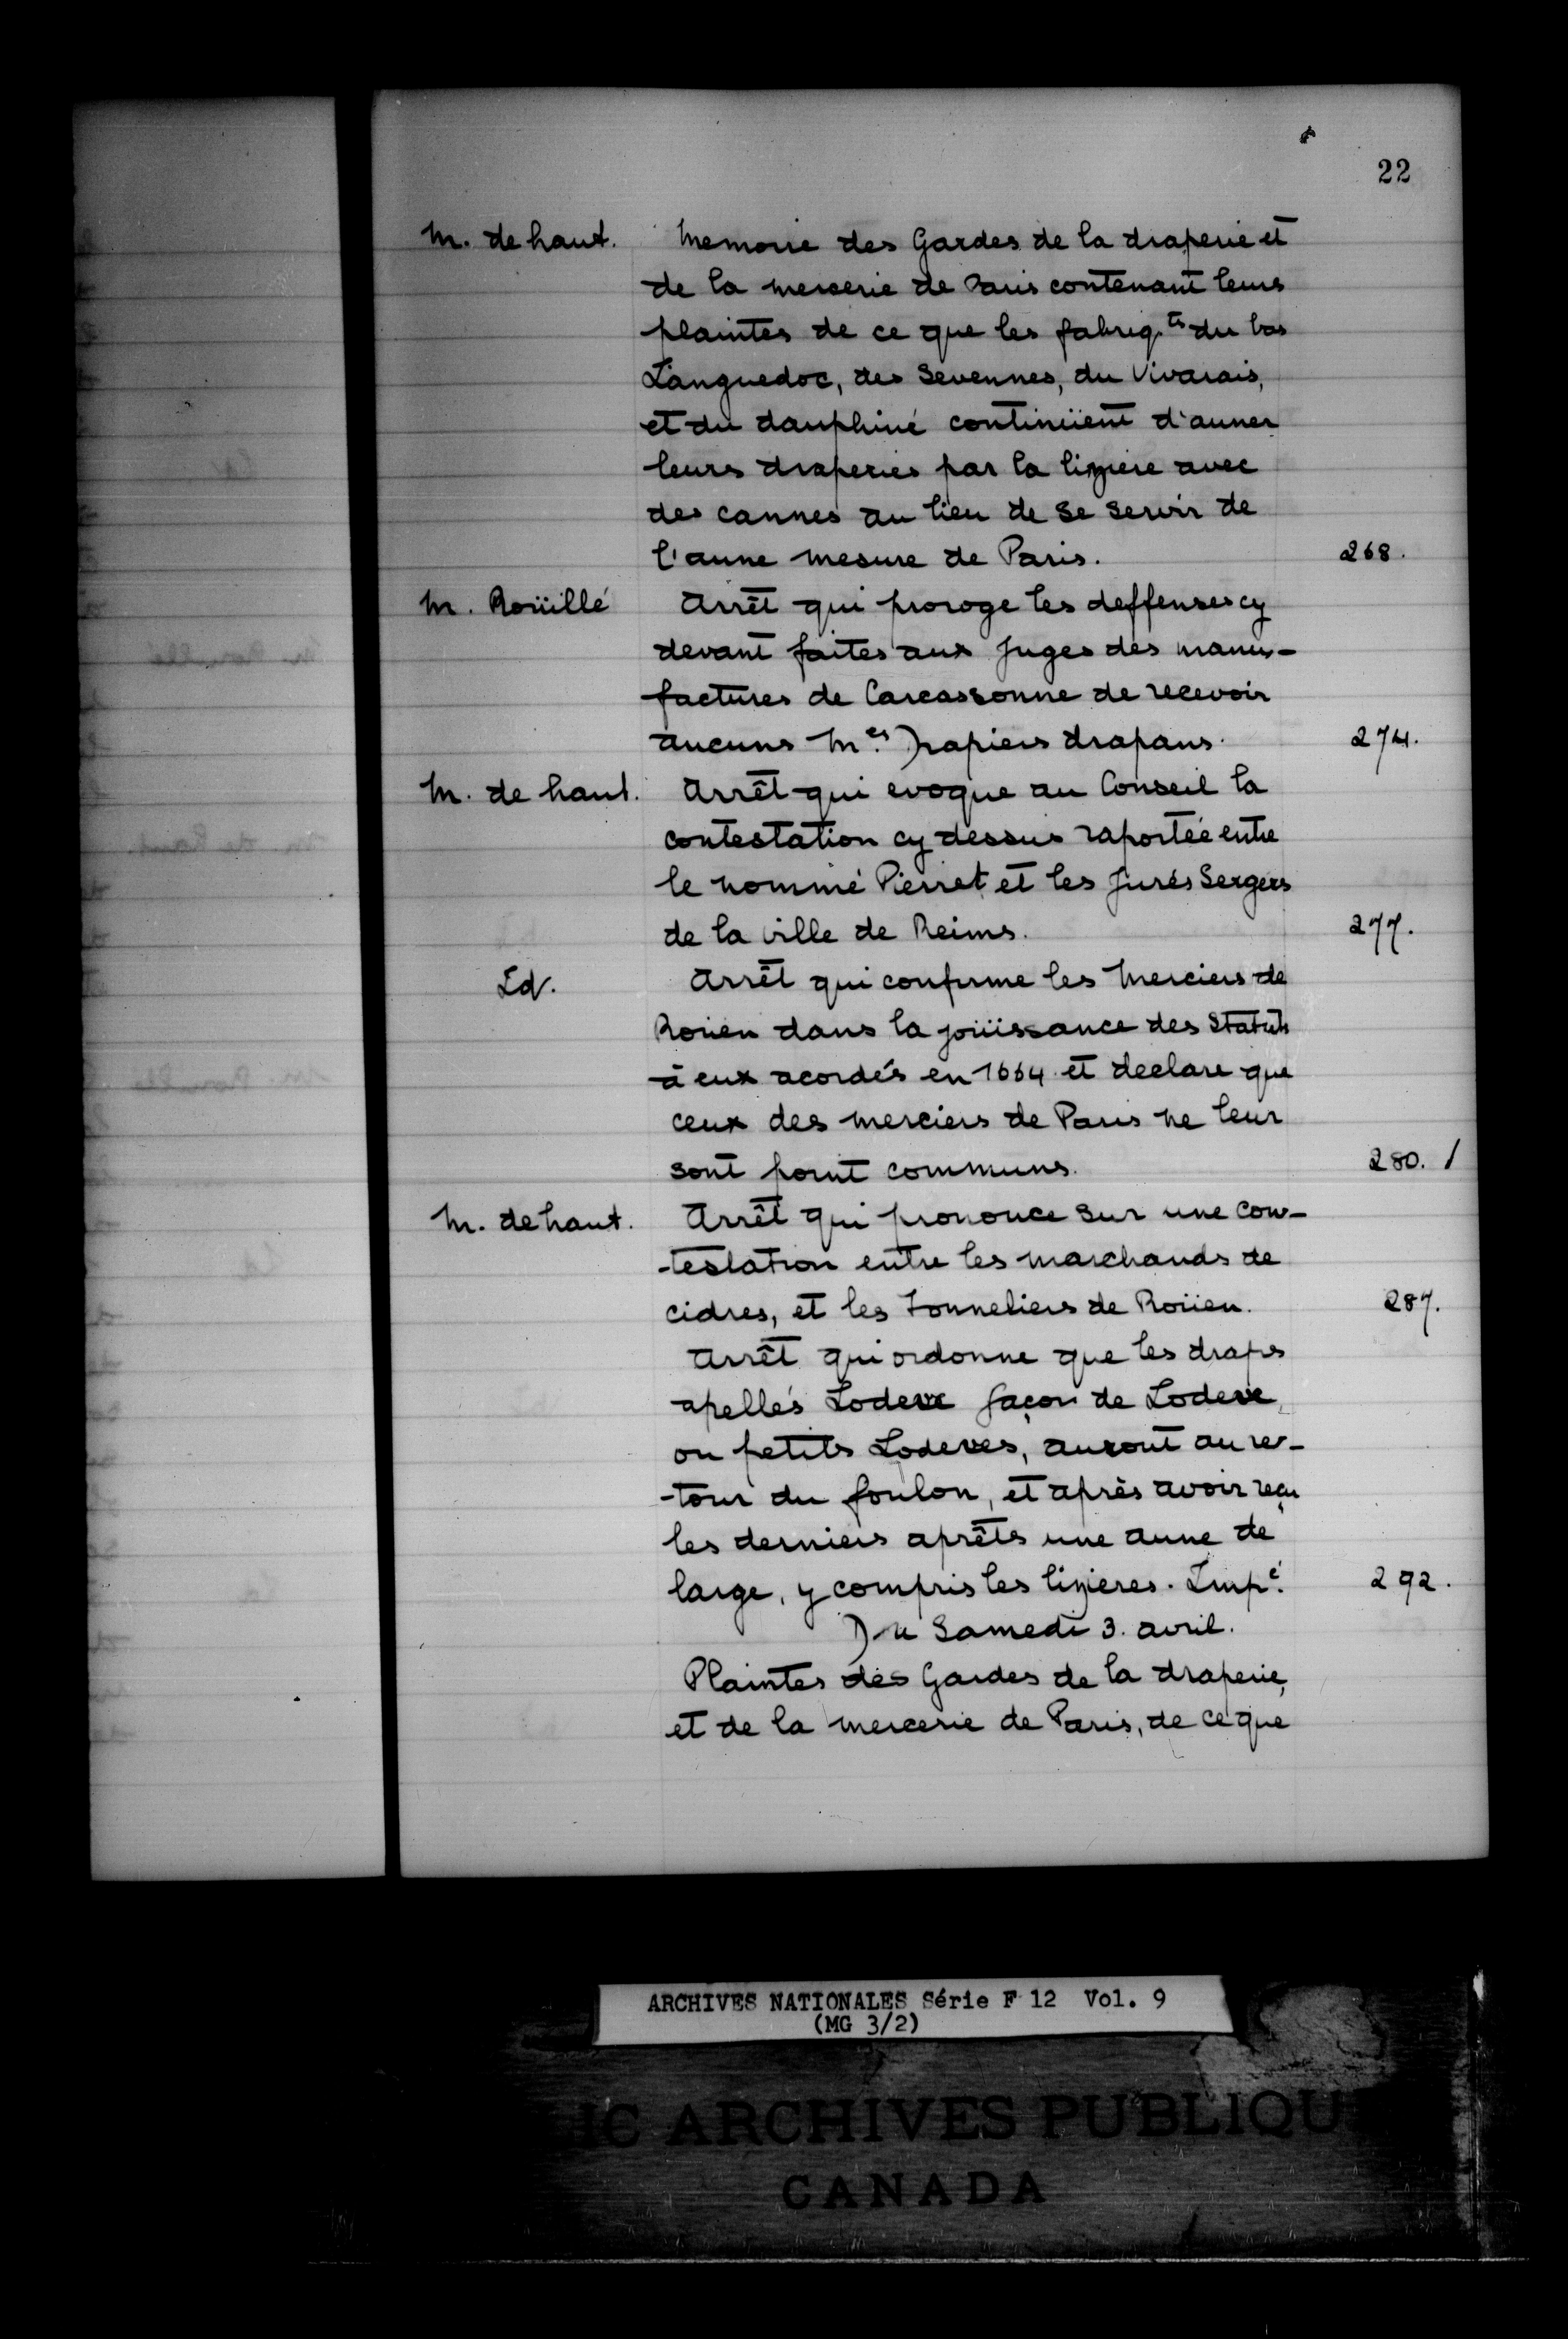 22
M. de haut. Memorie des Gardes de la draperie et
de la mercerie de Paris contenant leurs
plaintes de ce que les fabriq.ts du bas
Languedoc, des Sevennes, du Vivarais,
et du dauphiné continüent d'auner
leurs draperies par la liziere avec
des cannes au lieu de se servir de
l'aune mesure de Paris. 268.
M. Roüillé Arrêt qui proroge les deffenses cy
devant faites aux Juges des manu-
factures de Carcassonne de recevoir
aucuns M.es Drapiers drapans. 274.
M. de haut. Arrêt qui evoque au Conseil la
contestation cy dessus raportée entre
le nommé Pierret et les Jurés Sergers
de la ville de Reims. 277.
Id. Arrêt qui confirme les Merciers de
Roüen dans la joüissance des Statuts
à eux acordés en 1664 et declare que
ceux des merciers de Paris ne leur
sont point communs. 280. /
M. de haut. Arrêt qui prononce sur une con-
-testation entre les marchands de
cidres, et les Tonneliers de Roüen. 287.
Arrêt qui ordonne que les draps
apellés Lodeve façon de Lodeve,
ou petits Lodeves, auront au re-
-tour du foulon, et après avoir reçu
les derniers aprêts une aune de
large, y compris les lizieres. Imp.é 292.
Du Samedi 3. avril.
Plaintes des Gardes de la draperie,
et de la mercerie de Paris, de ce que
ARCHIVES NATIONALES Série F 12 Vol. 9
(MG 3/2)
IC ARCHIVES PUBLIQU
CANADA